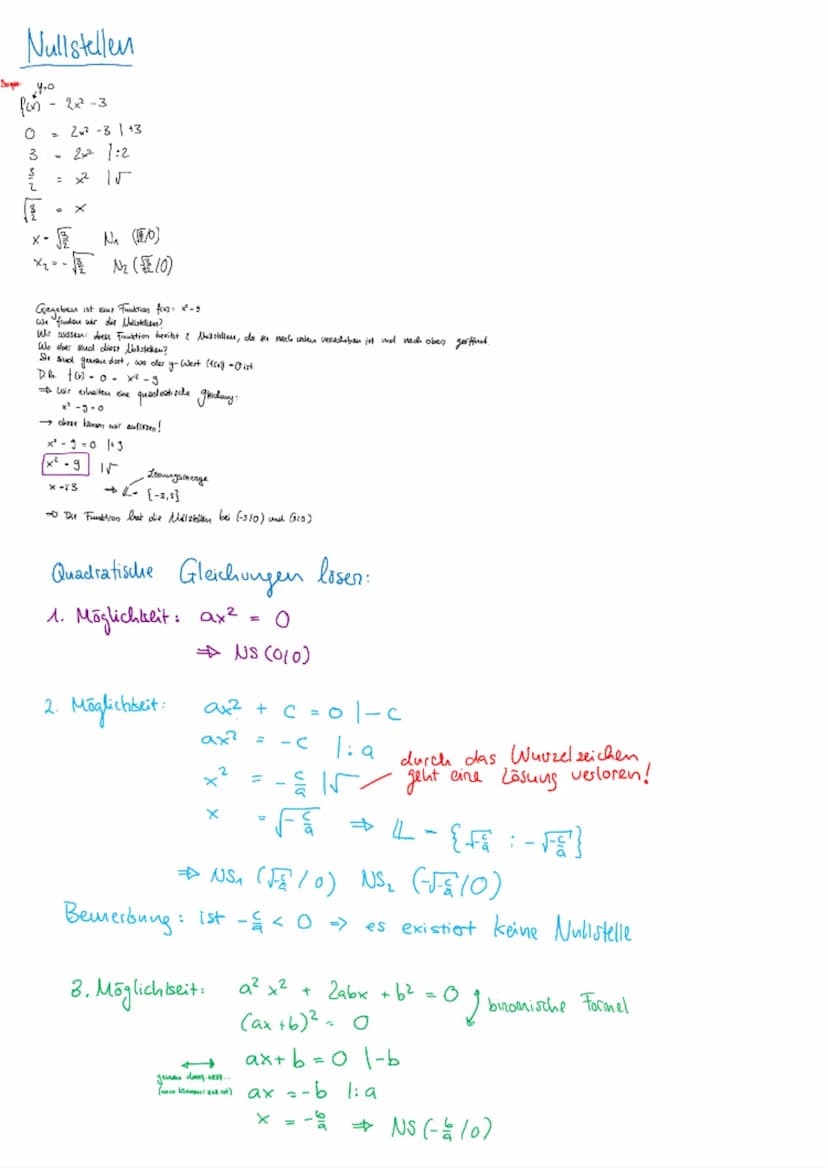 Nullstellen
y=0
f(x) = 2x² - 3
0 = 2x² - 3 | +3
3 = 2x² | :2
3/2 = x² | √
√(3/2) = x
x = √(3/2) N₁ (√(3/2)/0)
x₂ = -√(3/2) N₂ (√(3/2)/0)
Gegeben ist eine Funktion f(x) = x² - 9
Wie finden wir die Nullstellen?
Wir wissen: diese Funktion besitzt 2 Nullstellen, da sie nach unten verschoben ist und nach oben geöffnet.
Wo aber sind diese Nullstellen?
Sie sind genau dort, wo der y-Wert (f(x)) = 0 ist.
D.h. f(x) = 0 = x² - 9
⇒ wir erhalten eine quadratische Gleichung:
x² - 9 = 0
→ diese können wir auflösen!
x² - 9 = 0 | +9
x² = 9 | √
Lösungsmenge
x = ±3 ⇒ 𝕃 = {-3,3}
⇒ Die Funktion hat die Nullstellen bei (-3/0) und (3/0)
Quadratische Gleichungen lösen:
1. Möglichkeit: ax² = 0
⇒ NS (0/0)
2. Möglichkeit: ax² + c = 0 | -c
ax² = -c | :a
durch das Wurzelzeichen
x² = -c/a | √ geht eine Lösung verloren!
x = √(-c/a) ⇒ 𝕃 = {√(-c/a) ; -√(-c/a)}
⇒ NS₁ (√(-c/a) / 0) NS₂ (-√(-c/a) / 0)
Bemerkung: ist -c/a < 0 ⇒ es existiert keine Nullstelle
3. Möglichkeit: a²x² + 2abx + b² = 0 binomische Formel
(ax + b)² = 0
ax + b = 0 | -b
genau dann, wenn
ax = -b | :a
x = -b/a ⇒ NS (-b/a / 0)